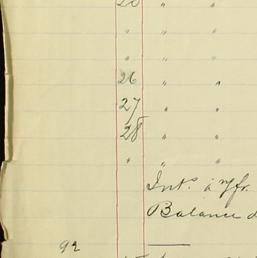 20 " "
" "
" "
26 " "
27 " "
28 " "
" " "
Int.s a/c fr.
Balance
92